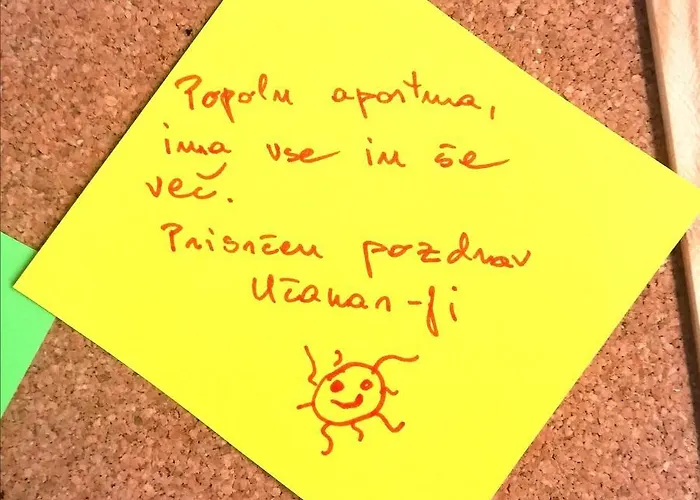 Popoln apartma,
ima vse in še
več.
Prisrčen pozdrav
Učakar-ji